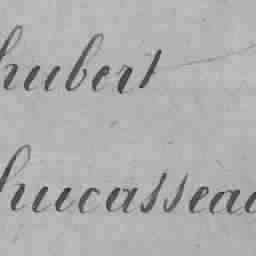 hubert
hucassea